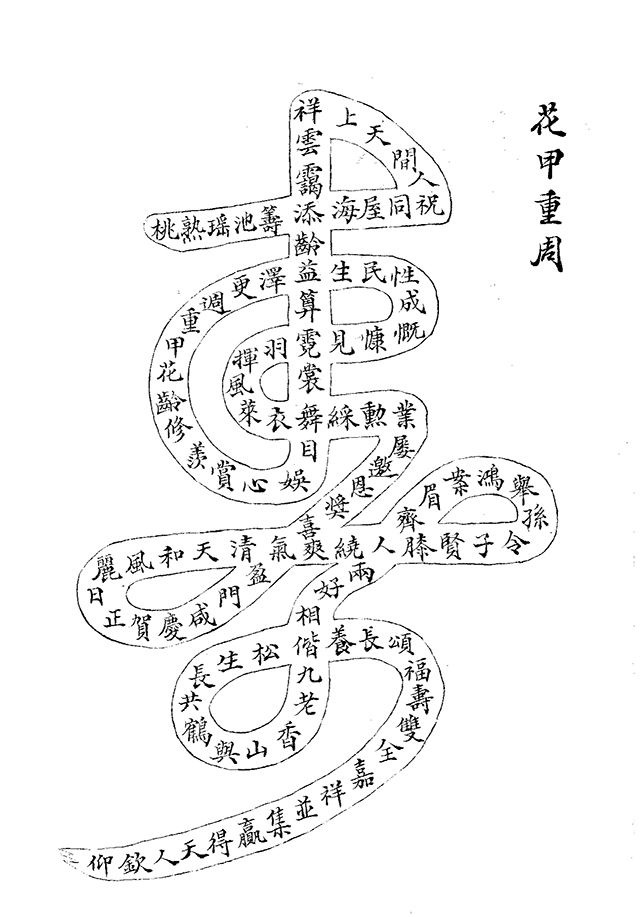 花甲重周
桃熟瑤池籌添海屋同祝人間天上
祥雲靄添齡益算霓裳舞目
娛心賞羨修齡花甲重週更澤
生民性成慷慨見
羽揮風萊衣
綵勳業屢邀恩獎喜
盈門咸慶賀正日麗風和天清氣爽繞人膝賢子令孫舉鴻案眉齊
兩好相偕九老香山與鶴共長生松
養長頌福壽雙全嘉祥並集贏得天人欽仰